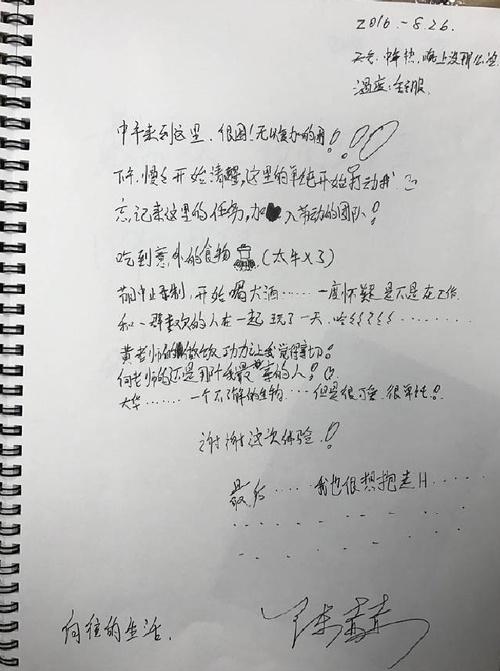 2016.-8.26.
天气:中午热,晚上没那么热
温度:舒服.
中午来到这里.很困!无比的困!
下午.慢慢开始清醒,这里的单纯开始打动我
忘记来这里的任务,加入劳动的团队!
吃到意外的食物(太牛X了)
节目中止录制,开始喝大酒……一度怀疑是不是在工作
和一群喜欢的人在一起玩了一天.哈
黄老师的做饭功力让我觉得亲切!
何老师还是那个我最爱的人!
大华……一个不了解的生物……但是很可爱.很单纯!
谢谢这次体验!
最后……我也很想抱走H……
向往的生活. 陈赫